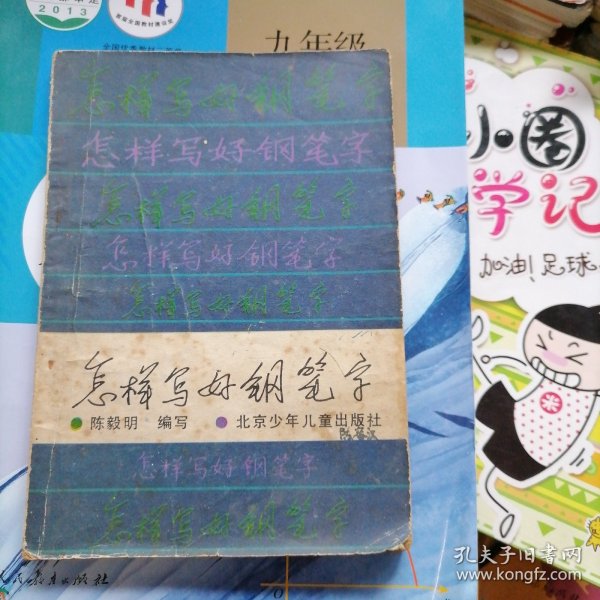 2013
全国优秀教材二等奖
九年级
怎样写好钢笔字
怎样写好钢笔字
怎样写好钢笔字
怎样写好钢笔字
怎样写好钢笔字
怎样写好钢笔字
陈毅明 编写 北京少年儿童出版社
怎样写好钢笔字
怎样写好钢笔字
人民教育出版社
小圈
学记
加油!足球
米
孔夫子旧书网
www.kongfz.com